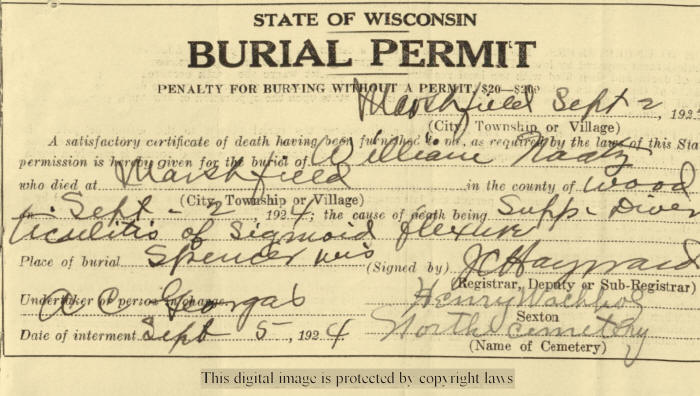 STATE OF WISCONSIN
BURIAL PERMIT
PENALTY FOR BURYING WITHOUT A PERMIT, $20—$200
Marshfield Sept 2, 192
(City, Township or Village)
A satisfactory certificate of death having been furnished to me, as required by the laws of this Sta
permission is hereby given for the burial of William Raatz
who died at Marshfield in the county of Wood
(City, Township or Village)
Sept - 2, 1924; the cause of death being Supp. Diver
ticulitis of Sigmoid flexure
Place of burial Spencer Wis (Signed by) JC Hayward
(Registrar, Deputy or Sub-Registrar)
Undertaker or person in charge A C Georgas Henry
Sexton
Date of interment Sept 5, 1924 North Cemetery
(Name of Cemetery)
This digital image is protected by copyright laws